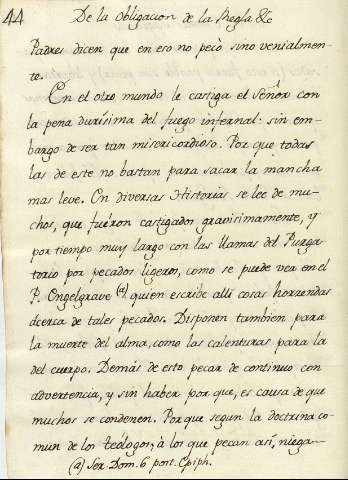 44 De la Obligacion de la Regla &c
Padres dicen que en eso no pecò sino venialmen-
te.
En el otro mundo le castiga el Señor con
la pena durísima del fuego infernal: sin em-
bargo de ser tan misericordioso. Por que todas
las de este no bastan para sacar la mancha
mas leve. En diversas Historias se lee de mu-
chos, que fuéron castigados gravisimamente, y
por tiempo muy largo con las llamas del Purga-
torio por pecados ligeros, como se puede ver en el
P. Engelgrave (a) quien escribe alli cosas horrendas
acerca de tales pecados. Disponen tambien para
la muerte del alma, como las calenturas para la
del cuerpo. Demás de esto pecar de continuo con
advertencia, y sin haber por que, es causa de que
muchos se condenen. Porque segun la doctrina co-
mun de los teologos, à los que pecan así, niega
(a) Ser. Dom. 6 post. Epiph.